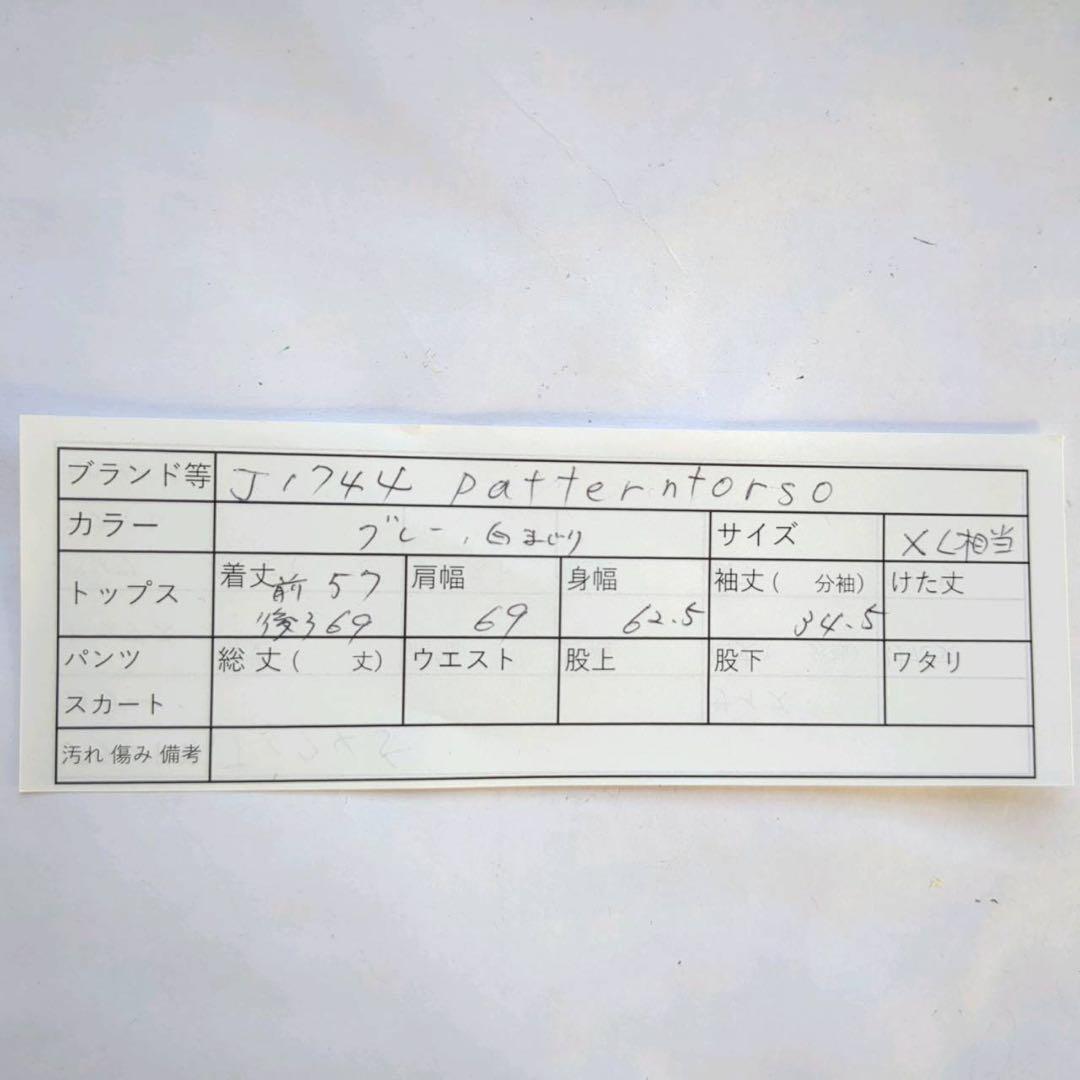 ブランド等 J1744 patterntorso
カラー グレー、白まじり サイズ XL相当
トップス 着丈 前 57 肩幅 身幅 袖丈( 分袖) けた丈
後ろ69 69 62.5 34.5
パンツ 総丈( 丈) ウエスト 股上 股下 ワタリ
スカート
汚れ 傷み 備考